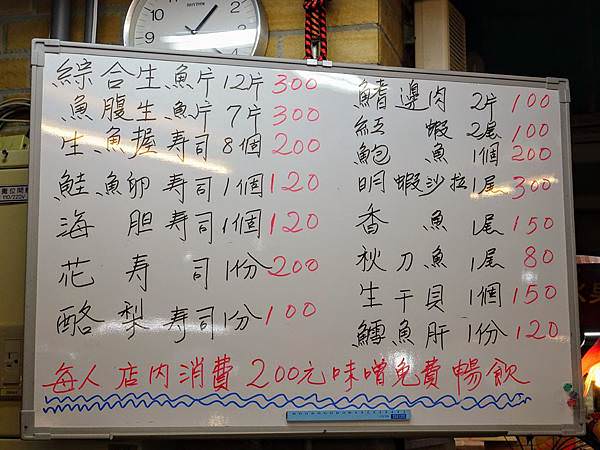 RHYTHM
綜合生魚片 12片 300
魚腹生魚片 7片 300
生魚握壽司 8個 200
鮭魚卵壽司 1個 120
海胆壽司 1個 120
花壽司 1份 200
酪梨壽司 1分 100
鰭邊肉 2片 100
紅蝦 2尾 100
鮑魚 1個 200
明蝦沙拉 1尾 300
香魚 1尾 150
秋刀魚 1尾 80
生干貝 1個 150
鱈魚肝 1份 120
每人店內消費200元味噌免費暢飲
110/220V